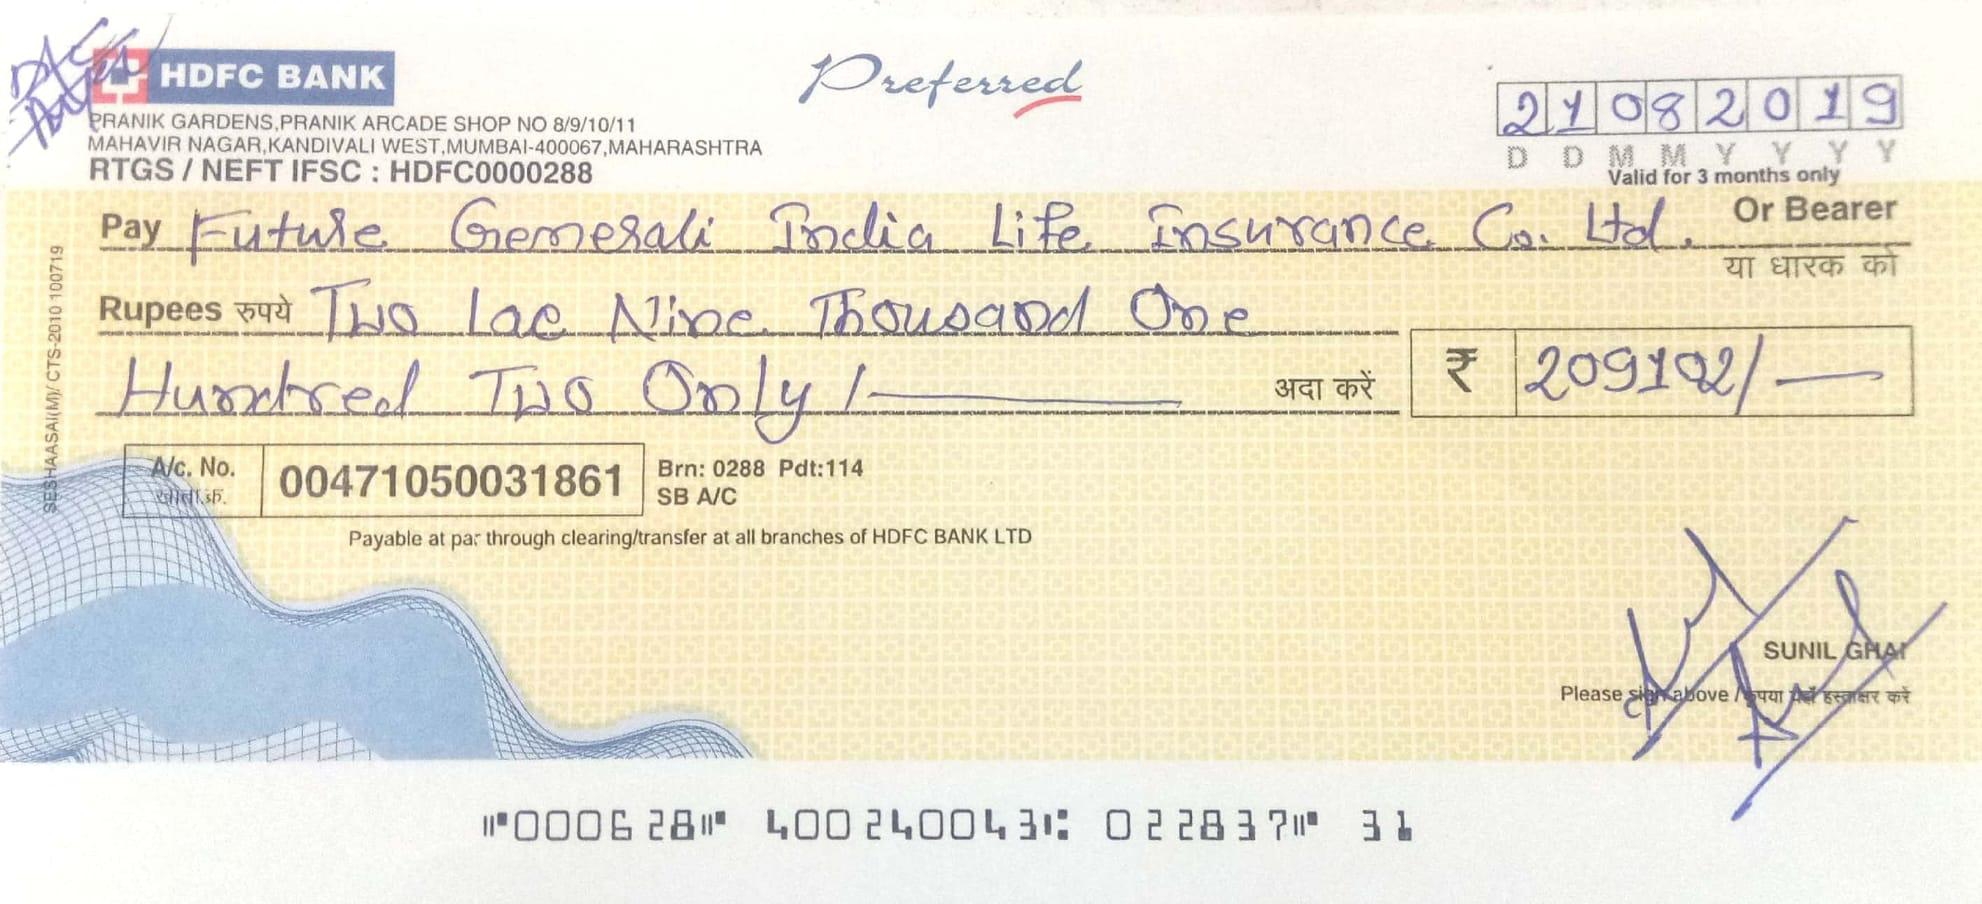 HDFC BANK
Preferred
PRANIK GARDENS,PRANIK ARCADE SHOP NO 8/9/10/11
MAHAVIR NAGAR,KANDIVALI WEST,MUMBAI-400067,MAHARASHTRA
RTGS / NEFT IFSC : HDFC0000288
21082019
D D M M Y Y Y Y
Valid for 3 months only
Pay Future Generali India Life Insurance Co. Ltd. Or Bearer
या धारक को
Rupees रुपये Two Lac Nine Thousand One
Hundred Two Only /— अदा करें ₹ 209102/—
A/c. No. 00471050031861
Brn: 0288 Pdt:114
SB A/C
Payable at par through clearing/transfer at all branches of HDFC BANK LTD
SESHAASAI(M)/ CTS-2010 100719
SUNIL GHAI
Please sign above / कृपया यहाँ हस्ताक्षर करें
⑈000628⑈ 400240043⑆ 022837⑈ 31